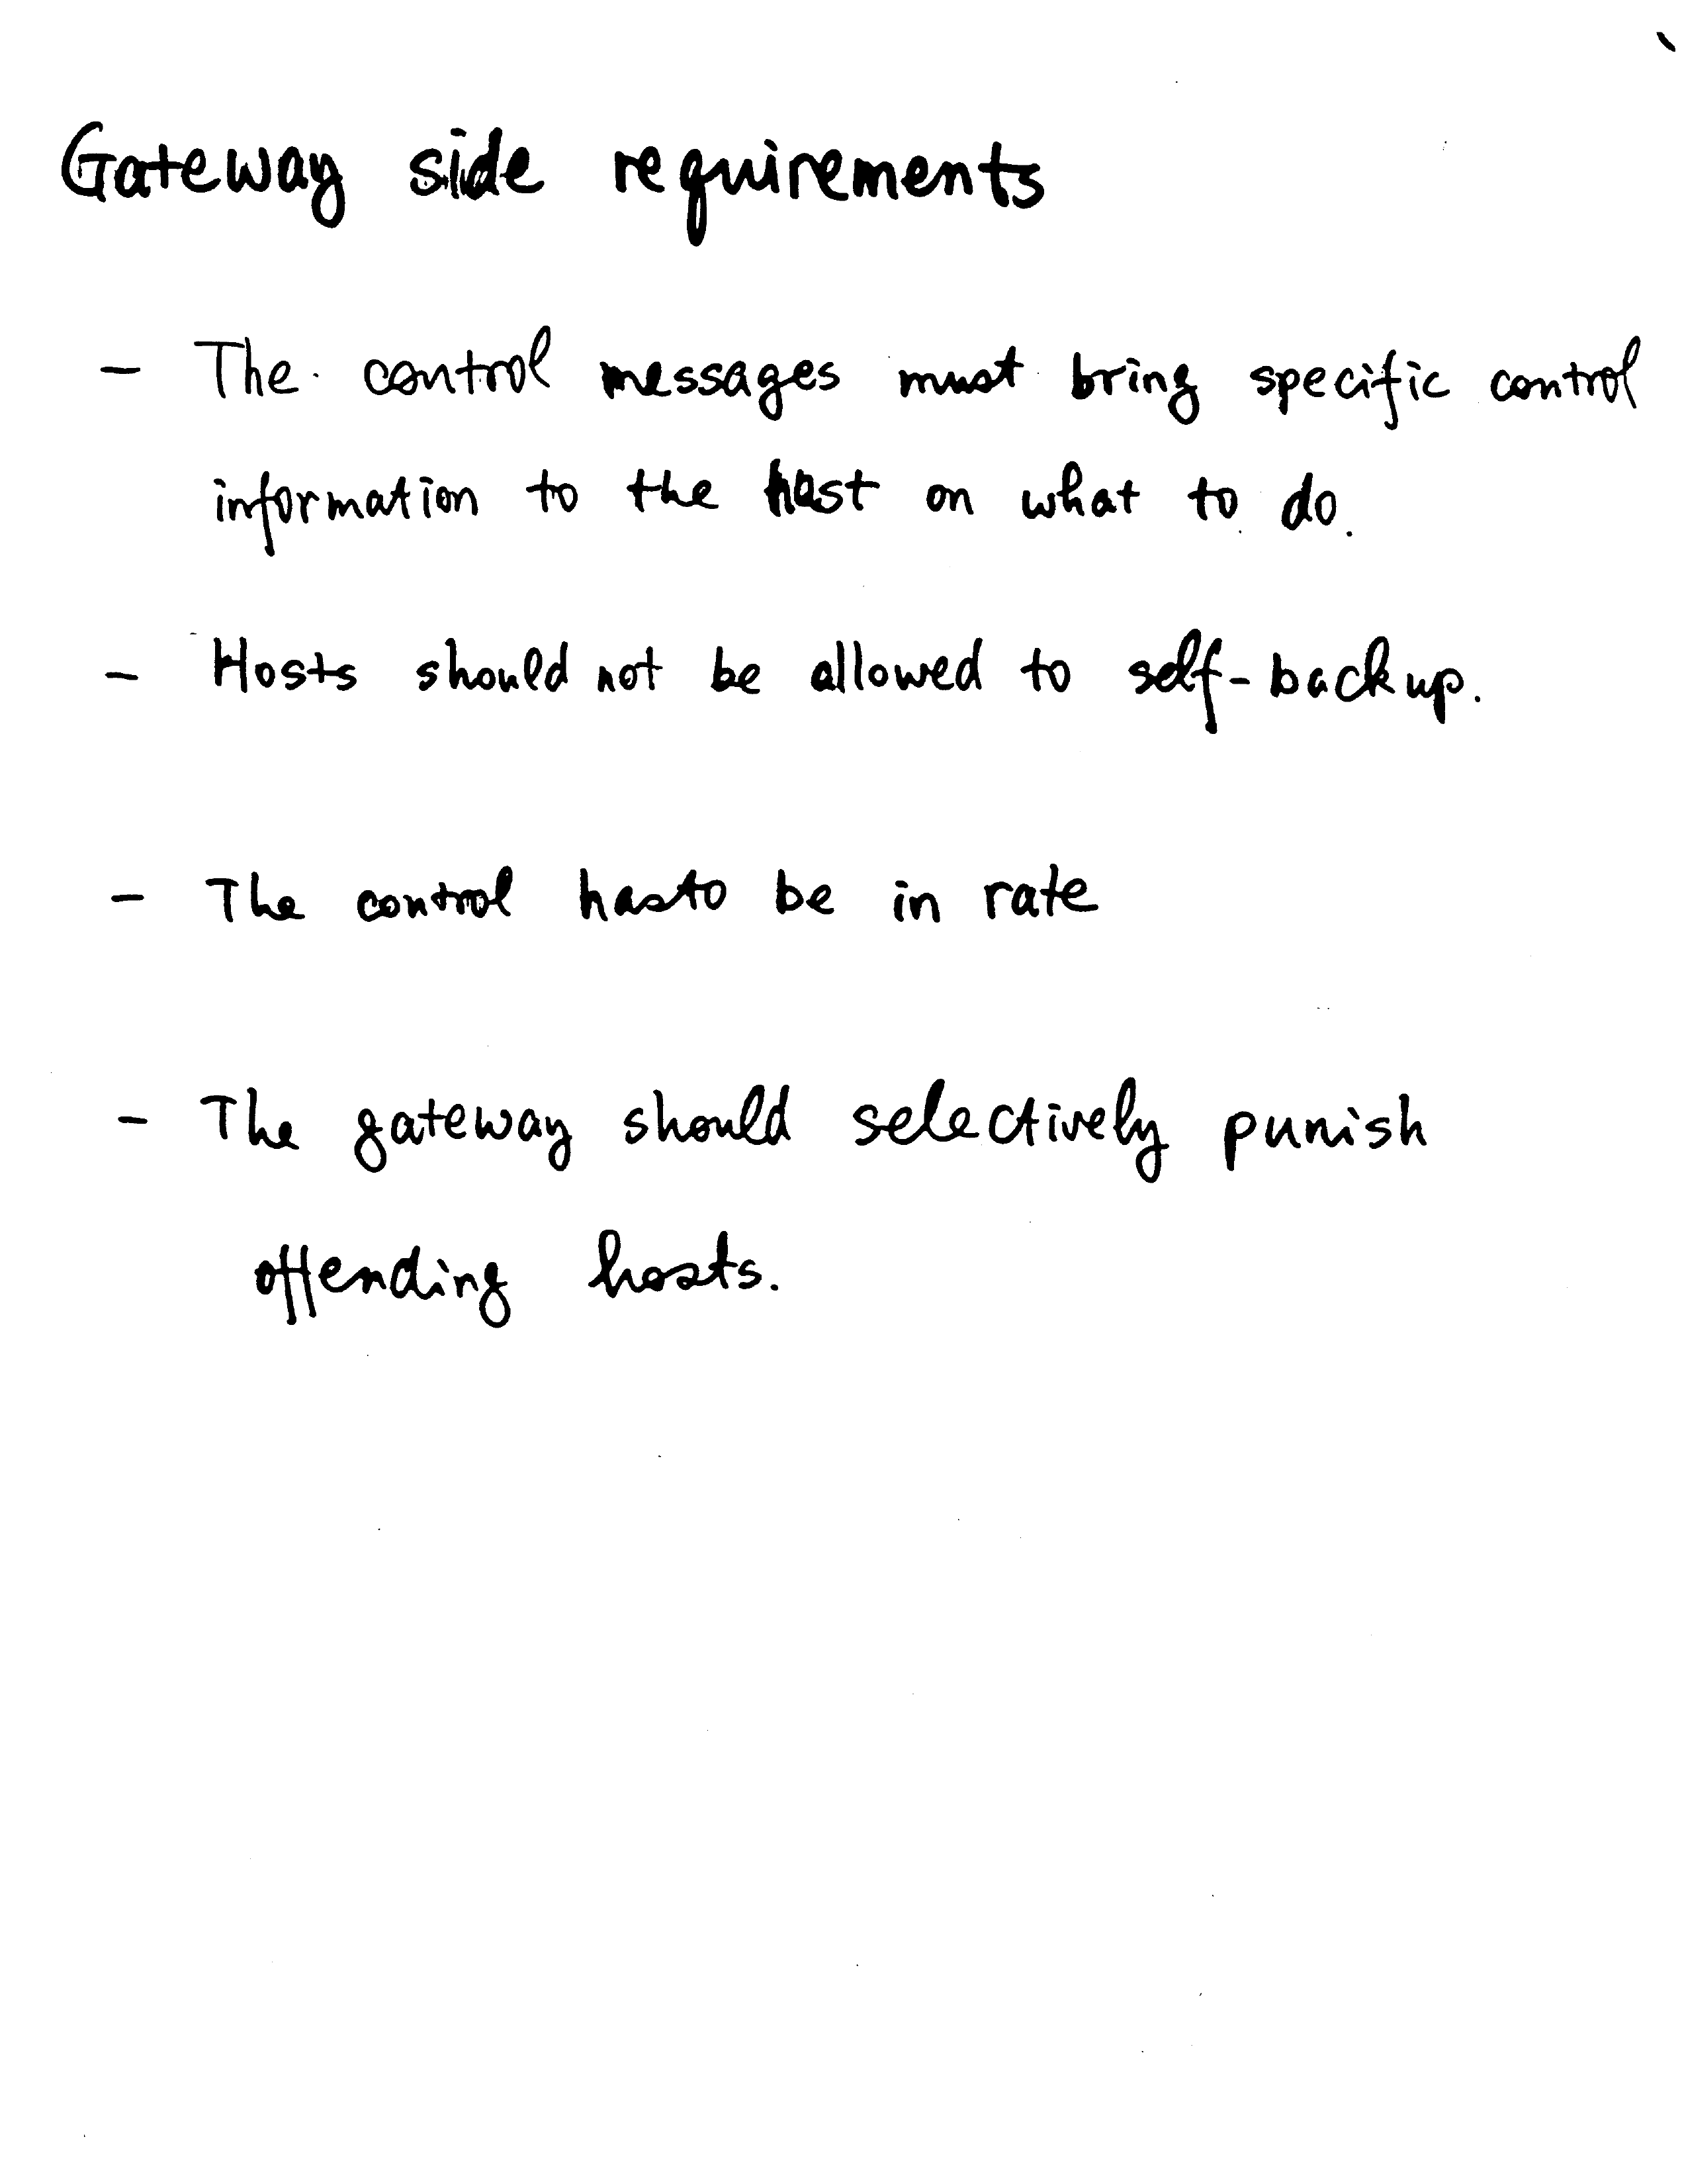 Gateway side requirements
- The control messages must bring specific control
information to the host on what to do.
- Hosts should not be allowed to self-backup.
- The control has to be in rate
- The gateway should selectively punish
offending hosts.